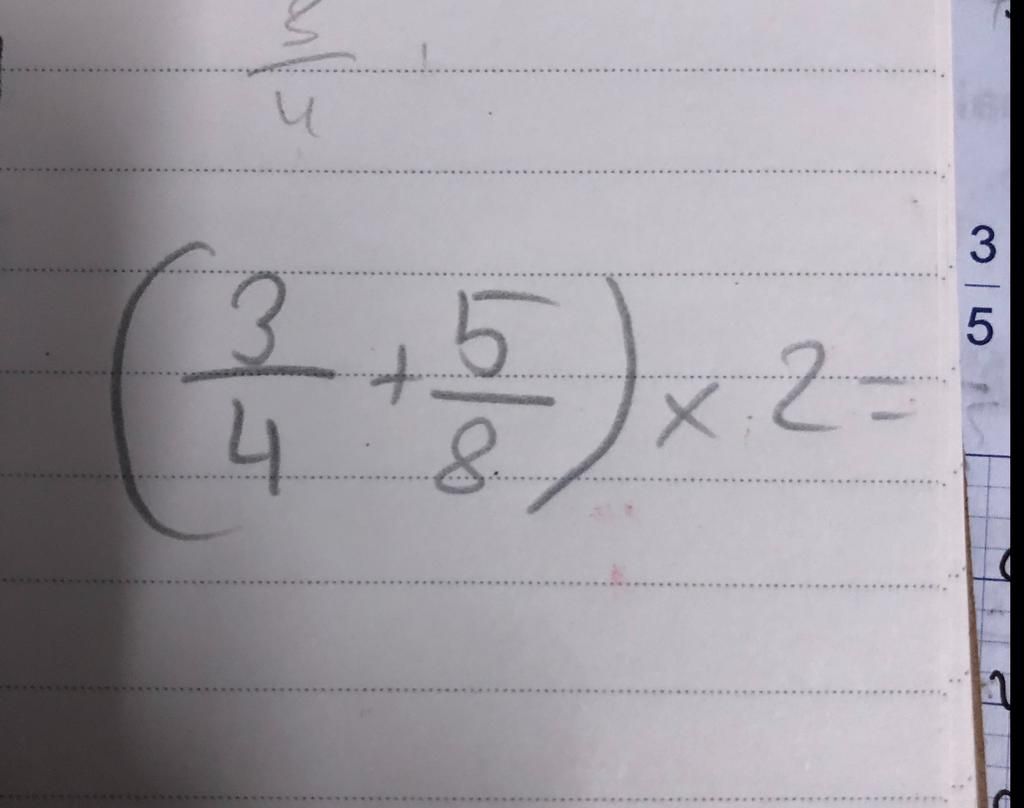 5/4
(3/4 + 5/8) × 2 =
3/5